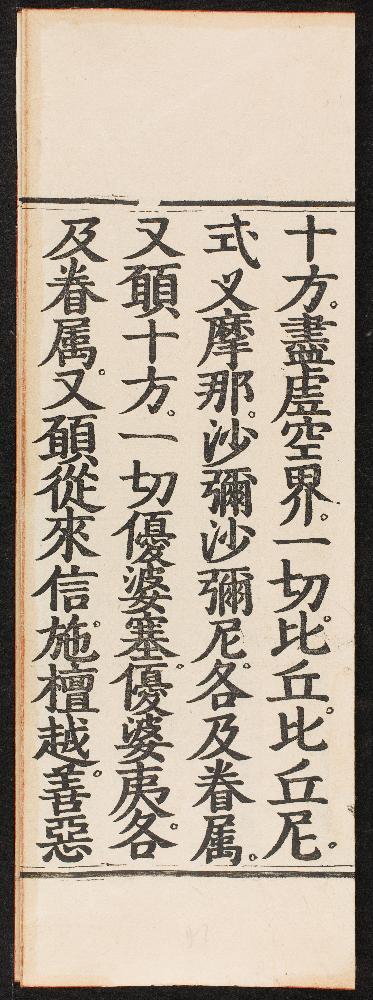 十方。盡虛空界。一切比丘。比丘尼。
式叉摩那。沙彌沙彌尼。各及眷属。
又頋十方。一切優婆塞。優婆夷。各
及眷属。又頋從來信施。檀越。善惡